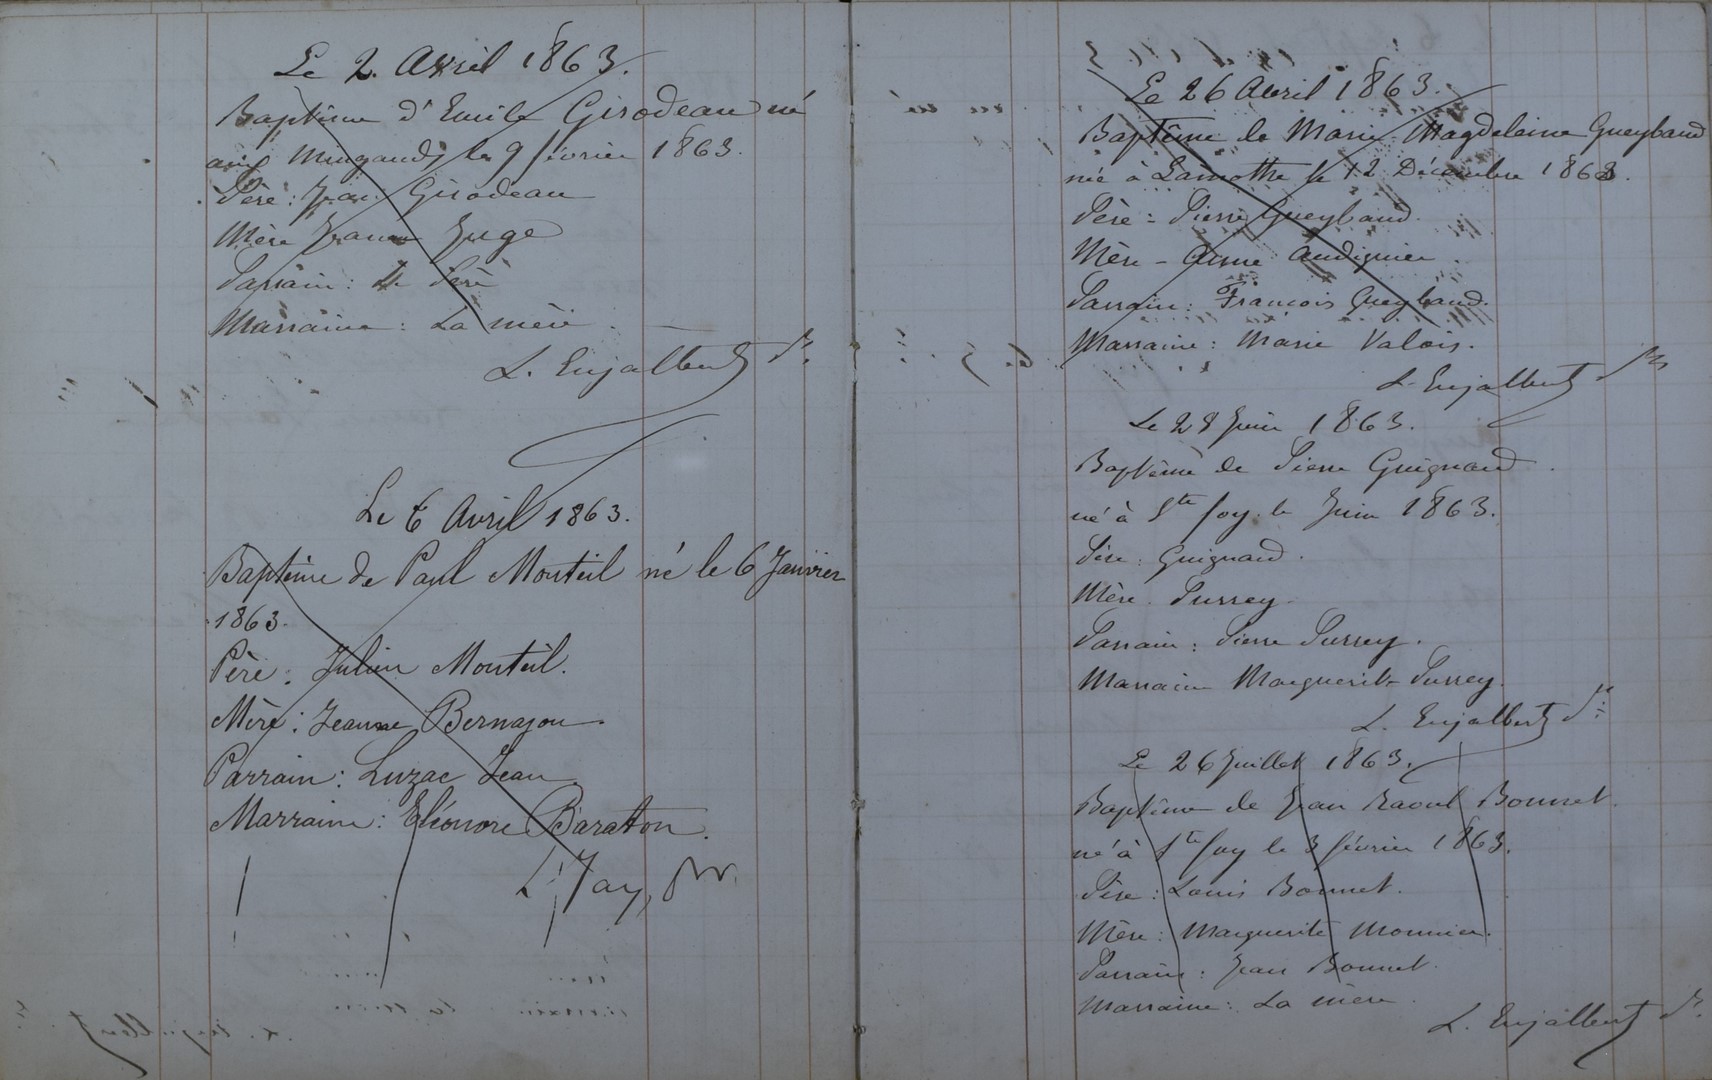 Le 2. Avril 1863.
Baptême d'Emile Girodeau né
aux Mingauds le 9 février 1863.
Père: Jean Girodeau
Mère Jeanne Juge
Parrain: Le Père
Marraine: La mère.
L. Enjalbert
Le 6 Avril 1863.
Baptême de Paul Monteil né le 6 Janvier
1863.
Père: Julien Monteil.
Mère: Jeanne Bernajou
Parrain: Luzac Jean
Marraine: Eléonore Baraton.
Jay, pr.
Le 26 Avril 1863.
Baptême de Marie Magdeleine Gueybaud
née à Lamothe le 12 Décembre 1862.
Père = Pierre Gueybaud.
Mère - Anne Audignier.
Parrain: François Gueybaud.
Marraine: Marie Valois.
L. Enjalbert
Le 28 Juin 1863.
Baptême de Pierre Guignard.
né à Ste foy. le Juin 1863.
Père: Guignard.
Mère. Purrey.
Parrain: Pierre Purrey.
Marraine Marguerite Purrey.
L. Enjalbert
Le 26 Juillet 1863.
Baptême de Jean Raoul Bonnet.
né à Ste foy le 3 février 1863.
Père: Louis Bonnet.
Mère: Marguerite Mounier.
Parrain: Jean Bonnet.
Marraine: La mère.
L. Enjalbert